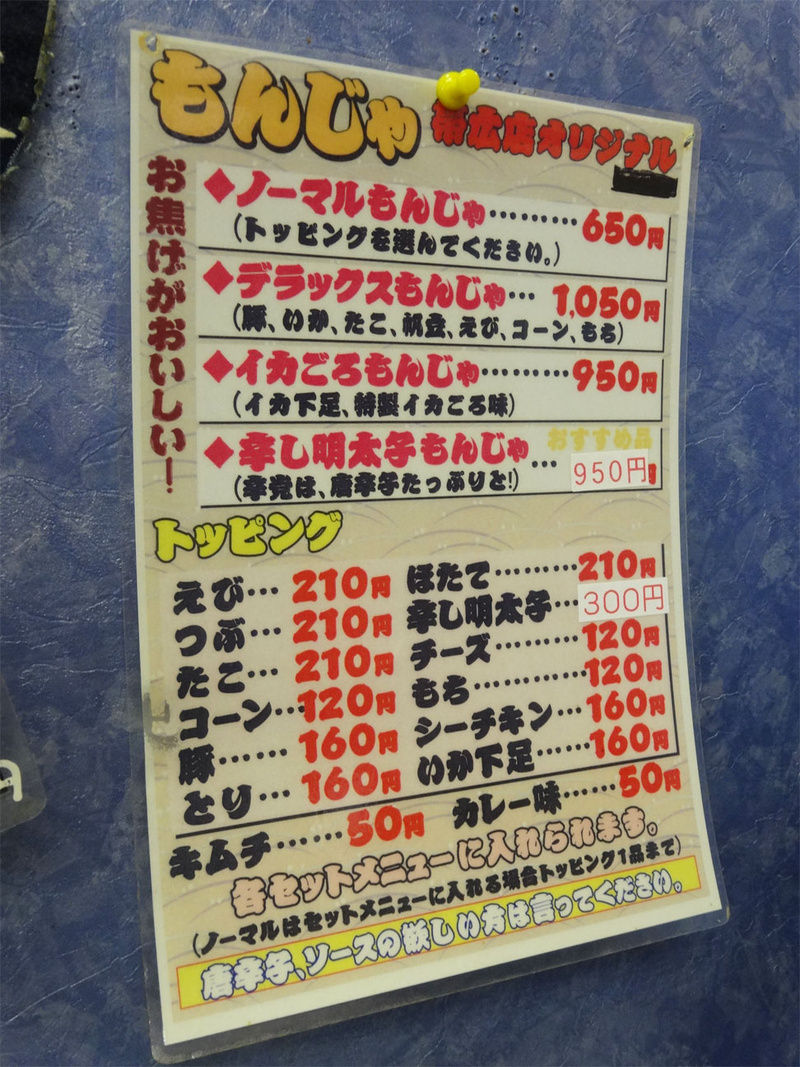 もんじゃ 帯広店オリジナル
お焦げがおいしい!
◆ノーマルもんじゃ………650円
(トッピングを選んでください。)
◆デラックスもんじゃ…1,050円
(豚、いか、たこ、帆立、えび、コーン、もち)
◆イカごろもんじゃ………950円
(イカ下足、特製イカごろ味)
おすすめ品
◆辛し明太子もんじゃ…950円
(辛党は、唐辛子たっぷりと!)
トッピング
えび…210円
つぶ…210円
たこ…210円
コーン…120円
豚……160円
とり…160円
ほたて………210円
辛し明太子…300円
チーズ………120円
もち…………120円
シーチキン…160円
いか下足……160円
キムチ……50円
カレー味……50円
各セットメニューに入れられます。
(ノーマルはセットメニューに入れる場合トッピング1品まで)
唐辛子、ソースの欲しい方は言ってください。